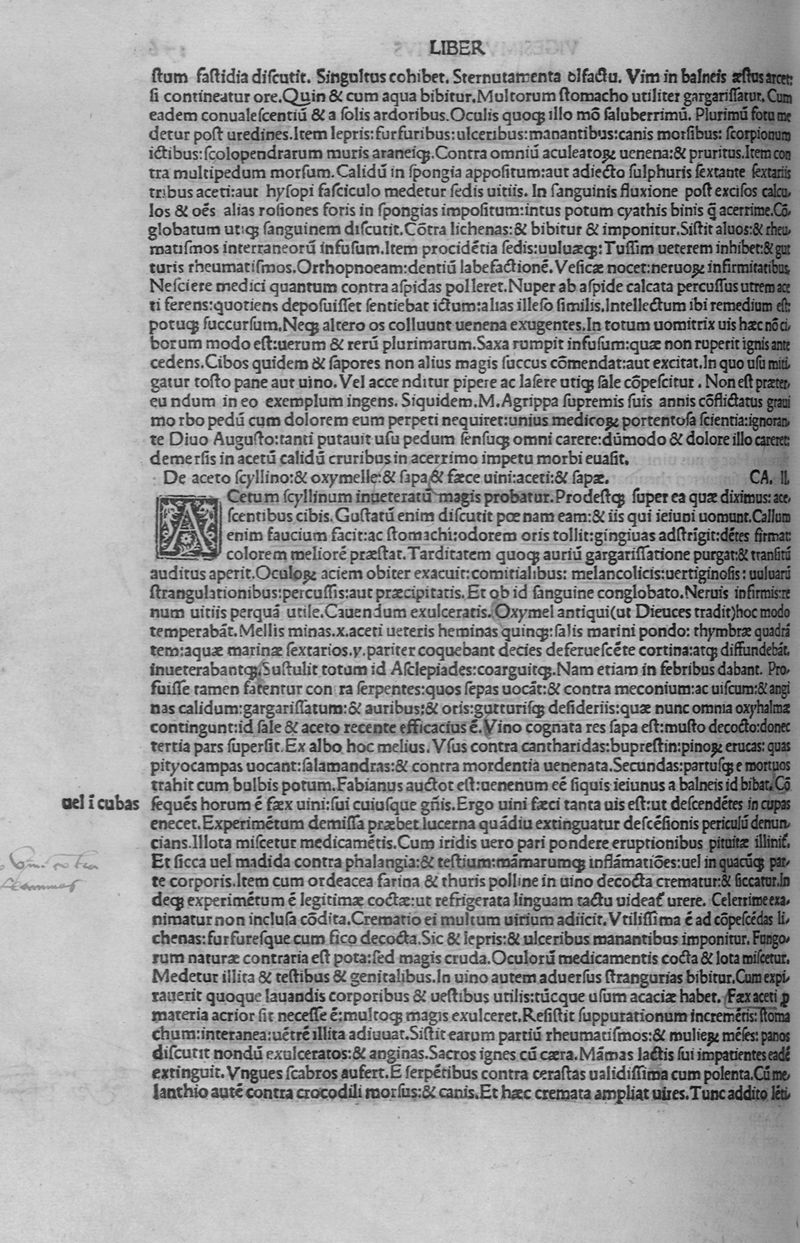 LIBER
ſtum faſtidia diſcutit. Singultus cohibet. Sternutamenta olfactu. Vim in balneis æſtus arcet:
ſi contineatur ore. Quin & cum aqua bibitur. Multorum ſtomacho utiliter gargariſſatur. Cum
eadem conualeſcentiũ & a ſolis ardoribus. Oculis quoqꝫ illo mõ ſaluberrimũ. Plurimũ fotu me
detur poſt uredines. Item lepris: furfuribus: ulceribus: manantibus: canis morſibus: ſcorpionum
ictibus: ſcolopendrarum muris araneiqꝫ. Contra omniũ aculeatoꝝ uenena: & pruritus. Item con
tra multipedum morſum. Calidũ in ſpongia appoſitum: aut adiecto ſulphuris ſextante ſextariis
tribus aceti: aut hyſopi faſciculo medetur ſedis uitiis. In ſanguinis fluxione poſt exciſos calcu-
los & oẽs alias roſiones foris in ſpongias impoſitum: intus potum cyathis binis q̃ acerrime. Cõ
globatum utiqꝫ ſanguinem diſcutit. Cõtra lichenas: & bibitur & imponitur. Siſtit aluos: & rheu-
matiſmos interraneorũ infuſum. Item procidẽtia ſedis: uuluæqꝫ: Tuſſim ueterem inhibet: & gut
turis rheumatiſmos. Orthopnoeam: dentiũ labefactionẽ. Veſicæ nocet: neruoꝝ infirmitatibus.
Neſciere medici quantum contra aſpidas polleret. Nuper ab aſpide calcata percuſſus utrem ace
ti ferens: quotiens depoſuiſſet ſentiebat ictum: alias illeſo ſimilis. Intellectum ibi remedium eſt:
potuqꝫ ſuccurſum. Neqꝫ altero os colluunt uenena exugentes. In totum uomitrix uis hæc nõ ci-
borum modo eſt: uerum & rerũ plurimarum. Saxa rumpit infuſum: quæ non ruperit ignis ante
cedens. Cibos quidem & ſapores non alius magis ſuccus cõmendat: aut excitat. In quo uſu miti-
gatur toſto pane aut uino. Vel accenditur pipere ac laſere utiqꝫ ſale cõpeſcitur. Non eſt præter-
eu ndum in eo exemplum ingens. Siquidem. M. Agrippa ſupremis ſuis annis cõflictatus graui
mo rbo pedũ cum dolorem eum perpeti nequiret: unius medicoꝝ portentoſa ſcientia: ignoran-
te Diuo Auguſto: tanti putauit uſu pedum ſenſuqꝫ omni carere: dũmodo & dolore illo careret:
demerſis in acetũ calidũ cruribus in acerrimo impetu morbi euaſit.
De aceto ſcyllino: & oxymelle: & ſapa, & fæce uini: aceti: & ſapæ. CA. II.
ACetum ſcyllinum inueteratũ magis probatur. Prodeſtqꝫ ſuper ea quæ diximus: ace-
ſcentibus cibis. Guſtatũ enim diſcutit poenam eam: & iis qui ieiuni uomunt. Callum
enim faucium facit: ac ſtomachi: odorem oris tollit: gingiuas adſtrigit: dẽtes firmat:
colorem meliorẽ præſtat. Tarditatem quoqꝫ auriũ gargariſſatione purgat: & tranſitũ
auditus aperit. Oculoꝝ aciem obiter exacuit: comitialibus: melancolicis: uertiginoſis: uuluarũ
ſtrangulationibus: percuſſis: aut præcipitatis. Et ob id ſanguine conglobato. Neruis infirmis: re
num uitiis perquã utile. Cauendum exulceratis. Oxymel antiqui (ut Dieuces tradit) hoc modo
temperabãt. Mellis minas. x. aceti ueteris heminas quinqꝫ: ſalis marini pondo: thymbræ quadrã
tem: aquæ marinæ ſextarios. y. pariter coquebant decies deferueſcẽte cortina: atqꝫ diffundebãt.
inueterabantqꝫ. Suſtulit totum id Aſclepiades: coarguitqꝫ. Nam etiam in febribus dabant. Pro-
fuiſſe tamen fatentur con ra ſerpentes: quos ſepas uocãt: & contra meconium: ac uiſcum: & angi
nas calidum: gargariſſatum: & auribus: & oris: gutturiſqꝫ deſideriis: quæ nunc omnia oxyhalmæ
contingunt: id ſale & aceto recente efficacius ẽ. Vino cognata res ſapa eſt: muſto decocto: donec
tertia pars ſuperſit. Ex albo hoc melius. Vſus contra cantharidas: bupreſtin: pinoꝝ erucas: quas
pityocampas uocant: ſalamandras: & contra mordentia uenenata. Secundas: partuſqꝫ e mortuos
trahit cum bulbis potum. Fabianus auctor eſt: uenenum eẽ ſiquis ieiunus a balneis id bibat. Cõ
uel ĩ cubas ſequẽs horum ẽ fæx uini: ſui cuiuſque gñis. Ergo uini fæci tanta uis eſt: ut deſcendẽtes in cupas
enecet. Experimẽtum demiſſa præbet lucerna quãdiu extinguatur deſcẽſionis periculũ denun-
cians. Illota miſcetur medicamẽtis. Cum iridis uero pari pondere eruptionibus pituitæ illinit̃.
Et ſicca uel madida contra phalangia: & teſtium: mãmarumqꝫ inflãmatiões: uel in quacũqꝫ par-
te corporis. Item cum ordeacea farina & thuris polline in uino decocta crematur: & ſiccatur. In
deqꝫ experimẽtum ẽ legitimæ coctæ: ut refrigerata linguam tactu uideat̃ urere. Celerrime exa-
nimatur non incluſa cõdita. Crematio ei multum uirium adiicit. Vtiliſſima ẽ ad cõpeſcẽdas li-
chenas: furfureſque cum fico decocta. Sic & lepris: & ulceribus manantibus imponitur. Fungo-
rum naturæ contraria eſt pota: ſed magis cruda. Oculorũ medicamentis cocta & lota miſcetur.
Medetur illita & teſtibus & genitalibus. In uino autem aduerſus ſtrangurias bibitur. Cum expi-
rauerit quoque lauandis corporibus & ueſtibus utilis: tũcque uſum acaciæ habet. Fæx aceti ꝓ
materia acrior ſit neceſſe ẽ: multoqꝫ magis exulceret. Reſiſtit ſuppurationum incremẽtis: ſtoma
chum: interanea: uẽtrẽ illita adiuuat. Siſtit earum partiũ rheumatiſmos: & mulieꝝ mẽſes: panos
diſcutit nondũ exulceratos: & anginas. Sacros ignes cũ cæra. Mãmas lactis ſui impatientes eadẽ
extinguit. Vngues ſcabros aufert. E ſerpẽtibus contra ceraſtas ualidiſſima cum polenta. Cũ me-
lanthio autẽ contra crocodili morſus: & canis. Et hæc cremata ampliat uires. Tunc addito lẽti-